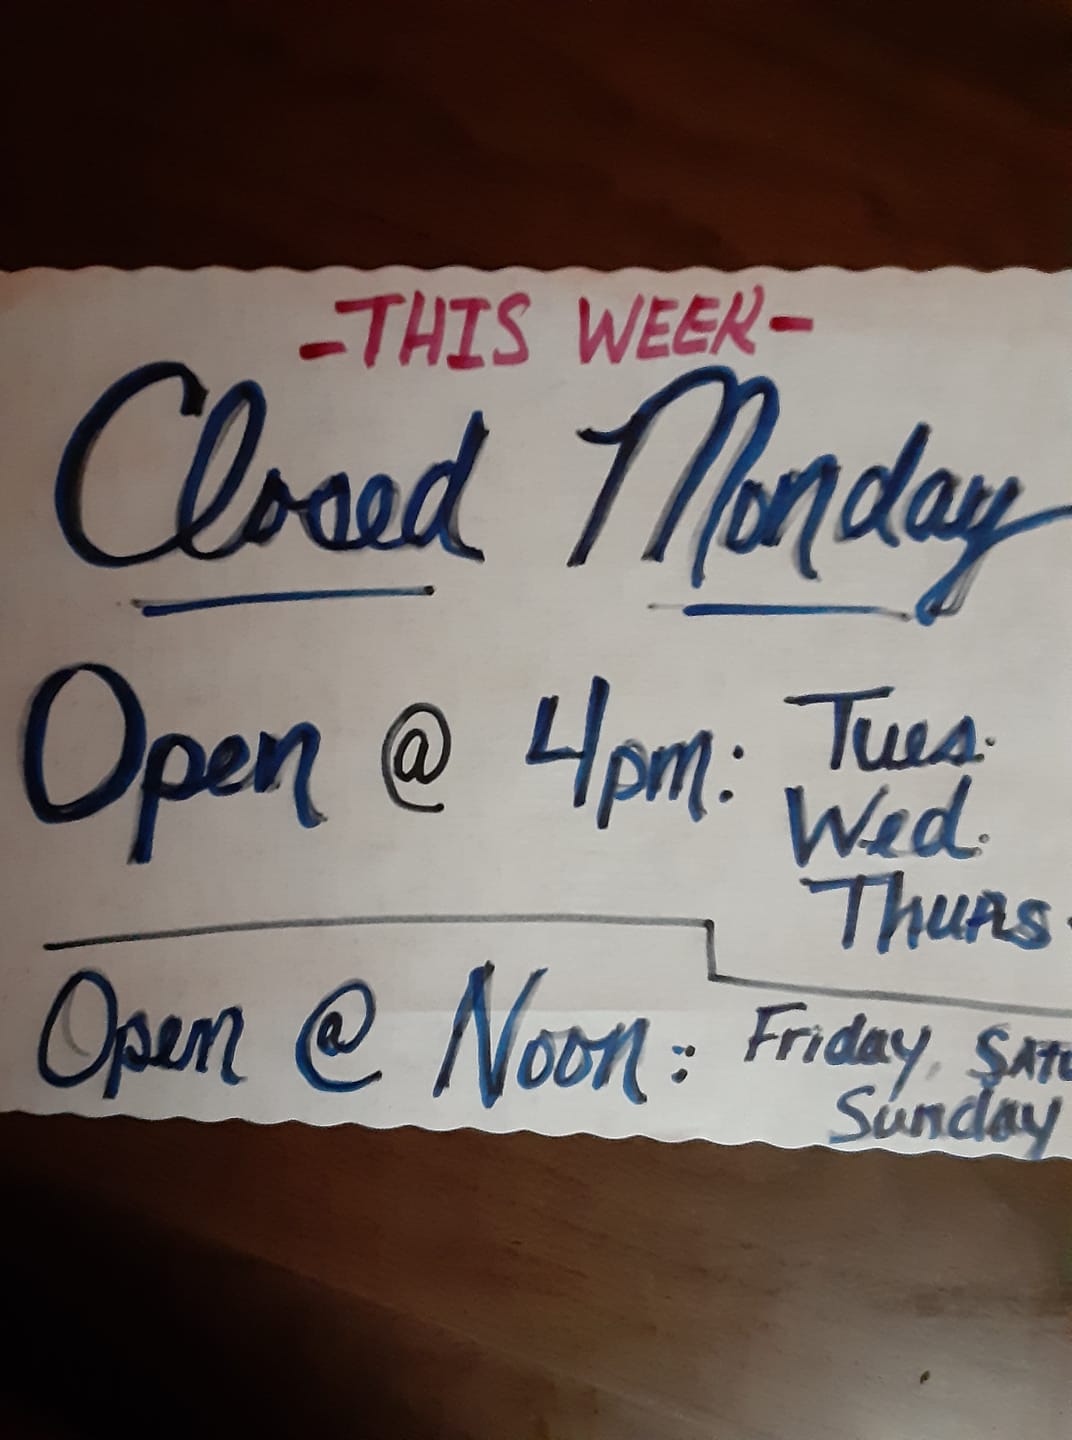 -THIS WEEK-
Closed Monday
Open @ 4pm: Tues.
Wed.
Thurs.
Open @ Noon: Friday, SATU
Sunday